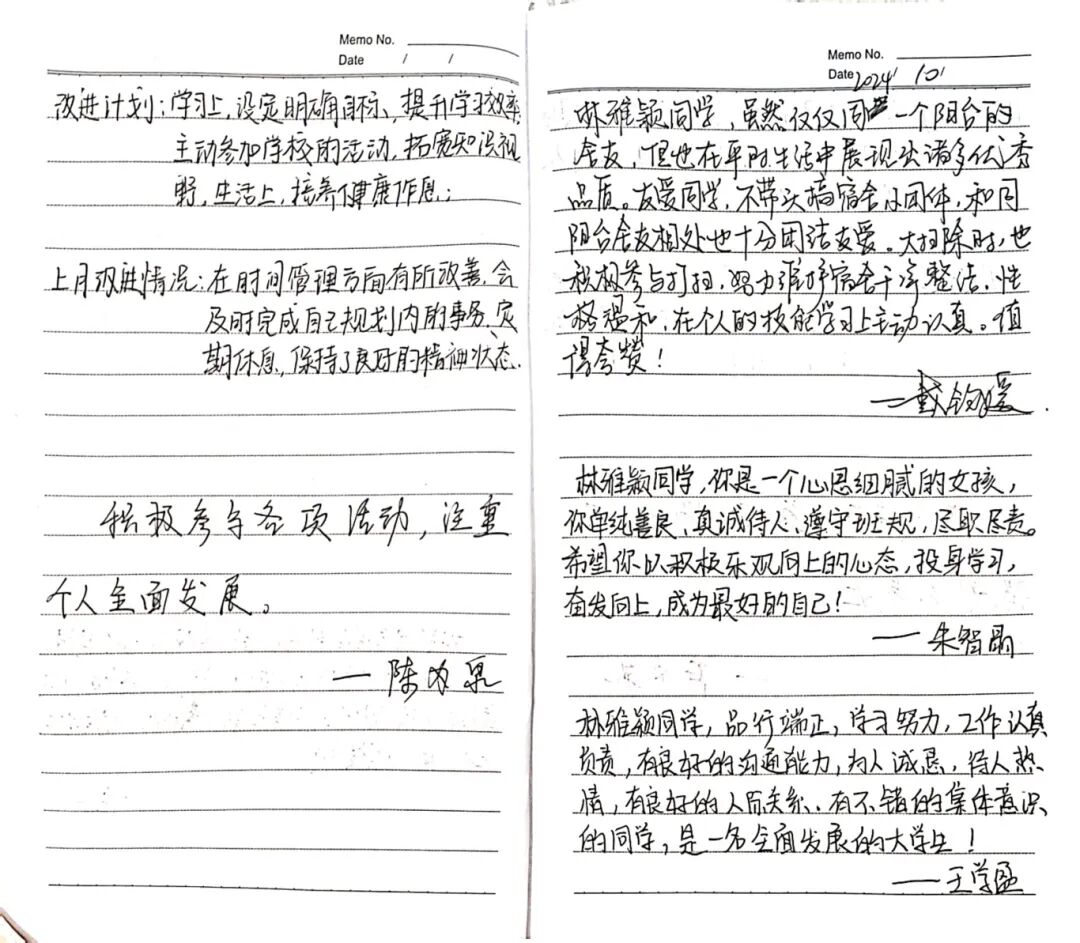 Memo No.
Date / /
改进计划：学习上，设定明确目标、提升学习效率，
主动参加学校的活动，拓宽知识视
野，生活上，培养健康作息；
上月改进情况：在时间管理方面有所改善，会
及时完成自己规划内的事务，定
期休息，保持了良好的精神状态。
积极参与各项活动，注重
个人全面发展。
——陈
Memo No.
Date 2024 10
林雅颖同学，虽然仅仅同一个阳台的
舍友，但也在平时生活中展现出诸多优秀
品质。友爱同学，不带头搞宿舍小团体，和同
阳台舍友相处也十分团结友爱。大扫除时，也
积极参与打扫，努力维护宿舍干净整洁，性
格温和，在个人的技能学习上主动认真。值
得夸赞！
——戴钧媛
林雅颖同学，你是一个心思细腻的女孩，
你单纯善良、真诚待人、遵守班规，尽职尽责。
希望你以积极乐观向上的心态，投身学习，
奋发向上，成为最好的自己！
——朱智晶
林雅颖同学，品行端正，学习努力，工作认真
负责，有良好的沟通能力，为人诚恳，待人热
情，有良好的人际关系、有不错的集体意识
的同学，是一名全面发展的大学生！
——王学盈